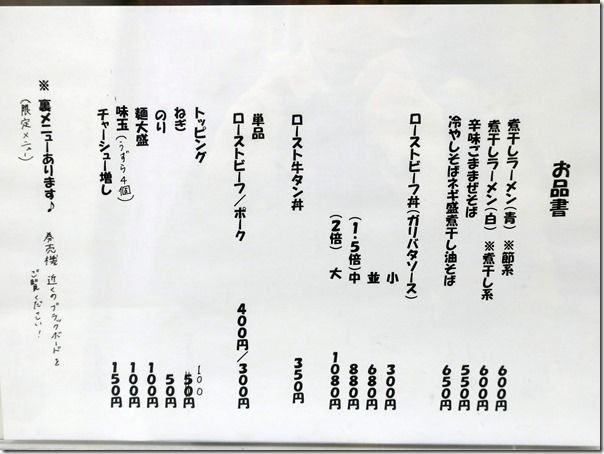 お品書
煮干しラーメン(青) ※節系 600円
煮干しラーメン(白) ※煮干し系 600円
辛味ごままぜそば 550円
冷やしそばネギ盛煮干し油そば 650円
ローストビーフ丼(ガリバタソース)
小 300円
並 680円
(1.5倍)中 880円
(2倍) 大 1080円
ロースト牛タン丼 350円
単品
ローストビーフ/ポーク 400円/300円
トッピング
ねぎ 50円 100
のり 50円
麺大盛 100円
味玉(うずら4個) 100円
チャーシュー増し 150円
※ 裏メニューあります♪ 券売機 近くのブラックボードを
ご覧ください!
(限定メニュー)